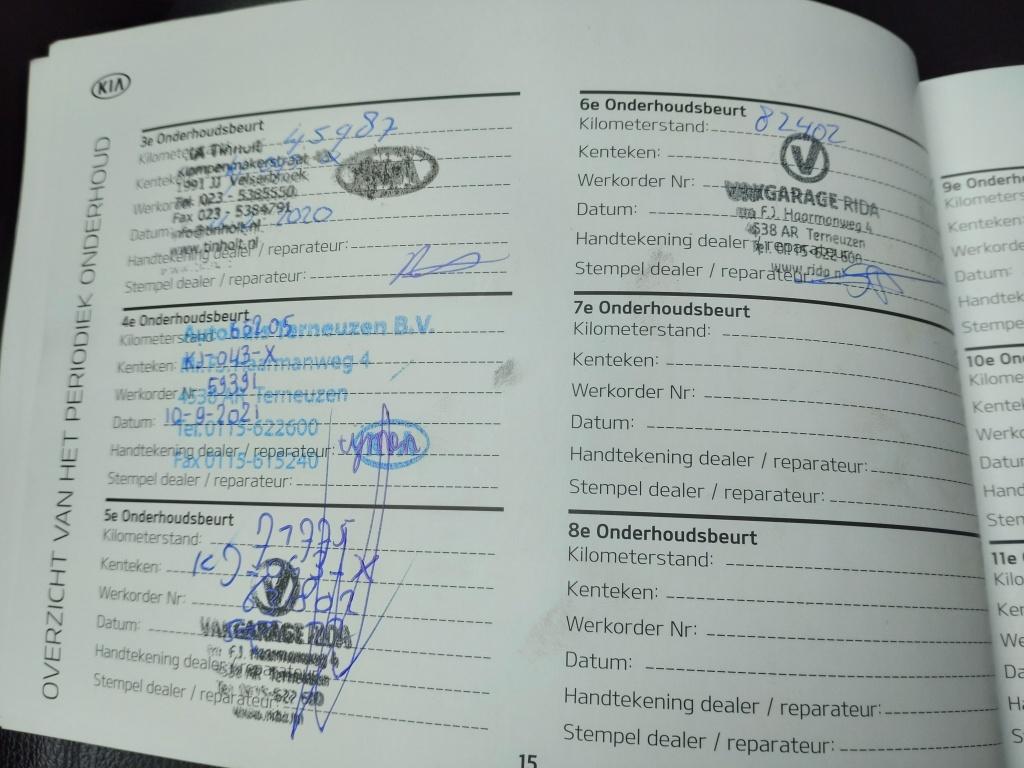 KIA
OVERZICHT VAN HET PERIODIEK ONDERHOUD
3e Onderhoudsbeurt
45987
Kennemakerstraat
1991 JJ Velserbroek
Tel. 023 - 5385550
Fax 023 - 5384791
Datum: 2020
info@tinholt.nl
www.tinholt.nl
Handtekening dealer / reparateur:
Stempel dealer / reparateur:
4e Onderhoudsbeurt
Terneuzen B.V.
Kilometerstand: 65205
Kenteken: KJ-043-X
Haarmanweg 4
Werkorder Nr: 59391
4538 AR Terneuzen
Datum: 10-9-2021
Tel. 0115-622600
Handtekening dealer / reparateur:
Fax 0115-615240
Stempel dealer / reparateur:
5e Onderhoudsbeurt
Kilometerstand:
Kenteken:
Werkorder Nr:
Datum:
VAKGARAGE RIDA
Handtekening dealer / reparateur:
Stempel dealer / reparateur:
6e Onderhoudsbeurt
Kilometerstand: 82402
Kenteken:
V
Werkorder Nr:
VAKGARAGE RIDA
Datum:
F.J. Haarmanweg 4
4538 AR Terneuzen
Handtekening dealer / reparateur:
Tel. 0115-622 600
www.rida.nl
Stempel dealer / reparateur:
7e Onderhoudsbeurt
Kilometerstand:
Kenteken:
Werkorder Nr:
Datum:
Handtekening dealer / reparateur:
Stempel dealer / reparateur:
8e Onderhoudsbeurt
Kilometerstand:
Kenteken:
Werkorder Nr:
Datum:
Handtekening dealer / reparateur:
Stempel dealer / reparateur:
15
9e Onderh
Kilometers
Kenteken:
Werkorde
Datum:
Handteke
Stempe
10e On
Kilome
Kentek
Werko
Datun
Hand
Sten
11e
Kilo
Ker
We
Da
Ha
S